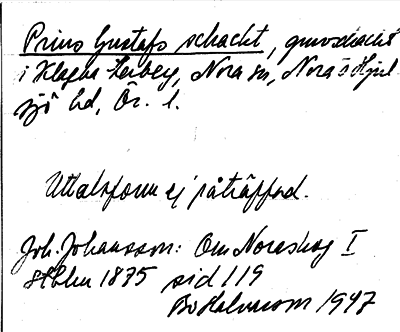 Prins Gustafs schackt, gruvschackt
i Klacka Lerberg, Nora sn, Nora o Hjul
sjö bd, Ör. l.
Uttalsform ej påträffad.
Joh. Johansson: Om Noraskog I
Sthlm 1875 sid 119
Bo Halvarson 1947